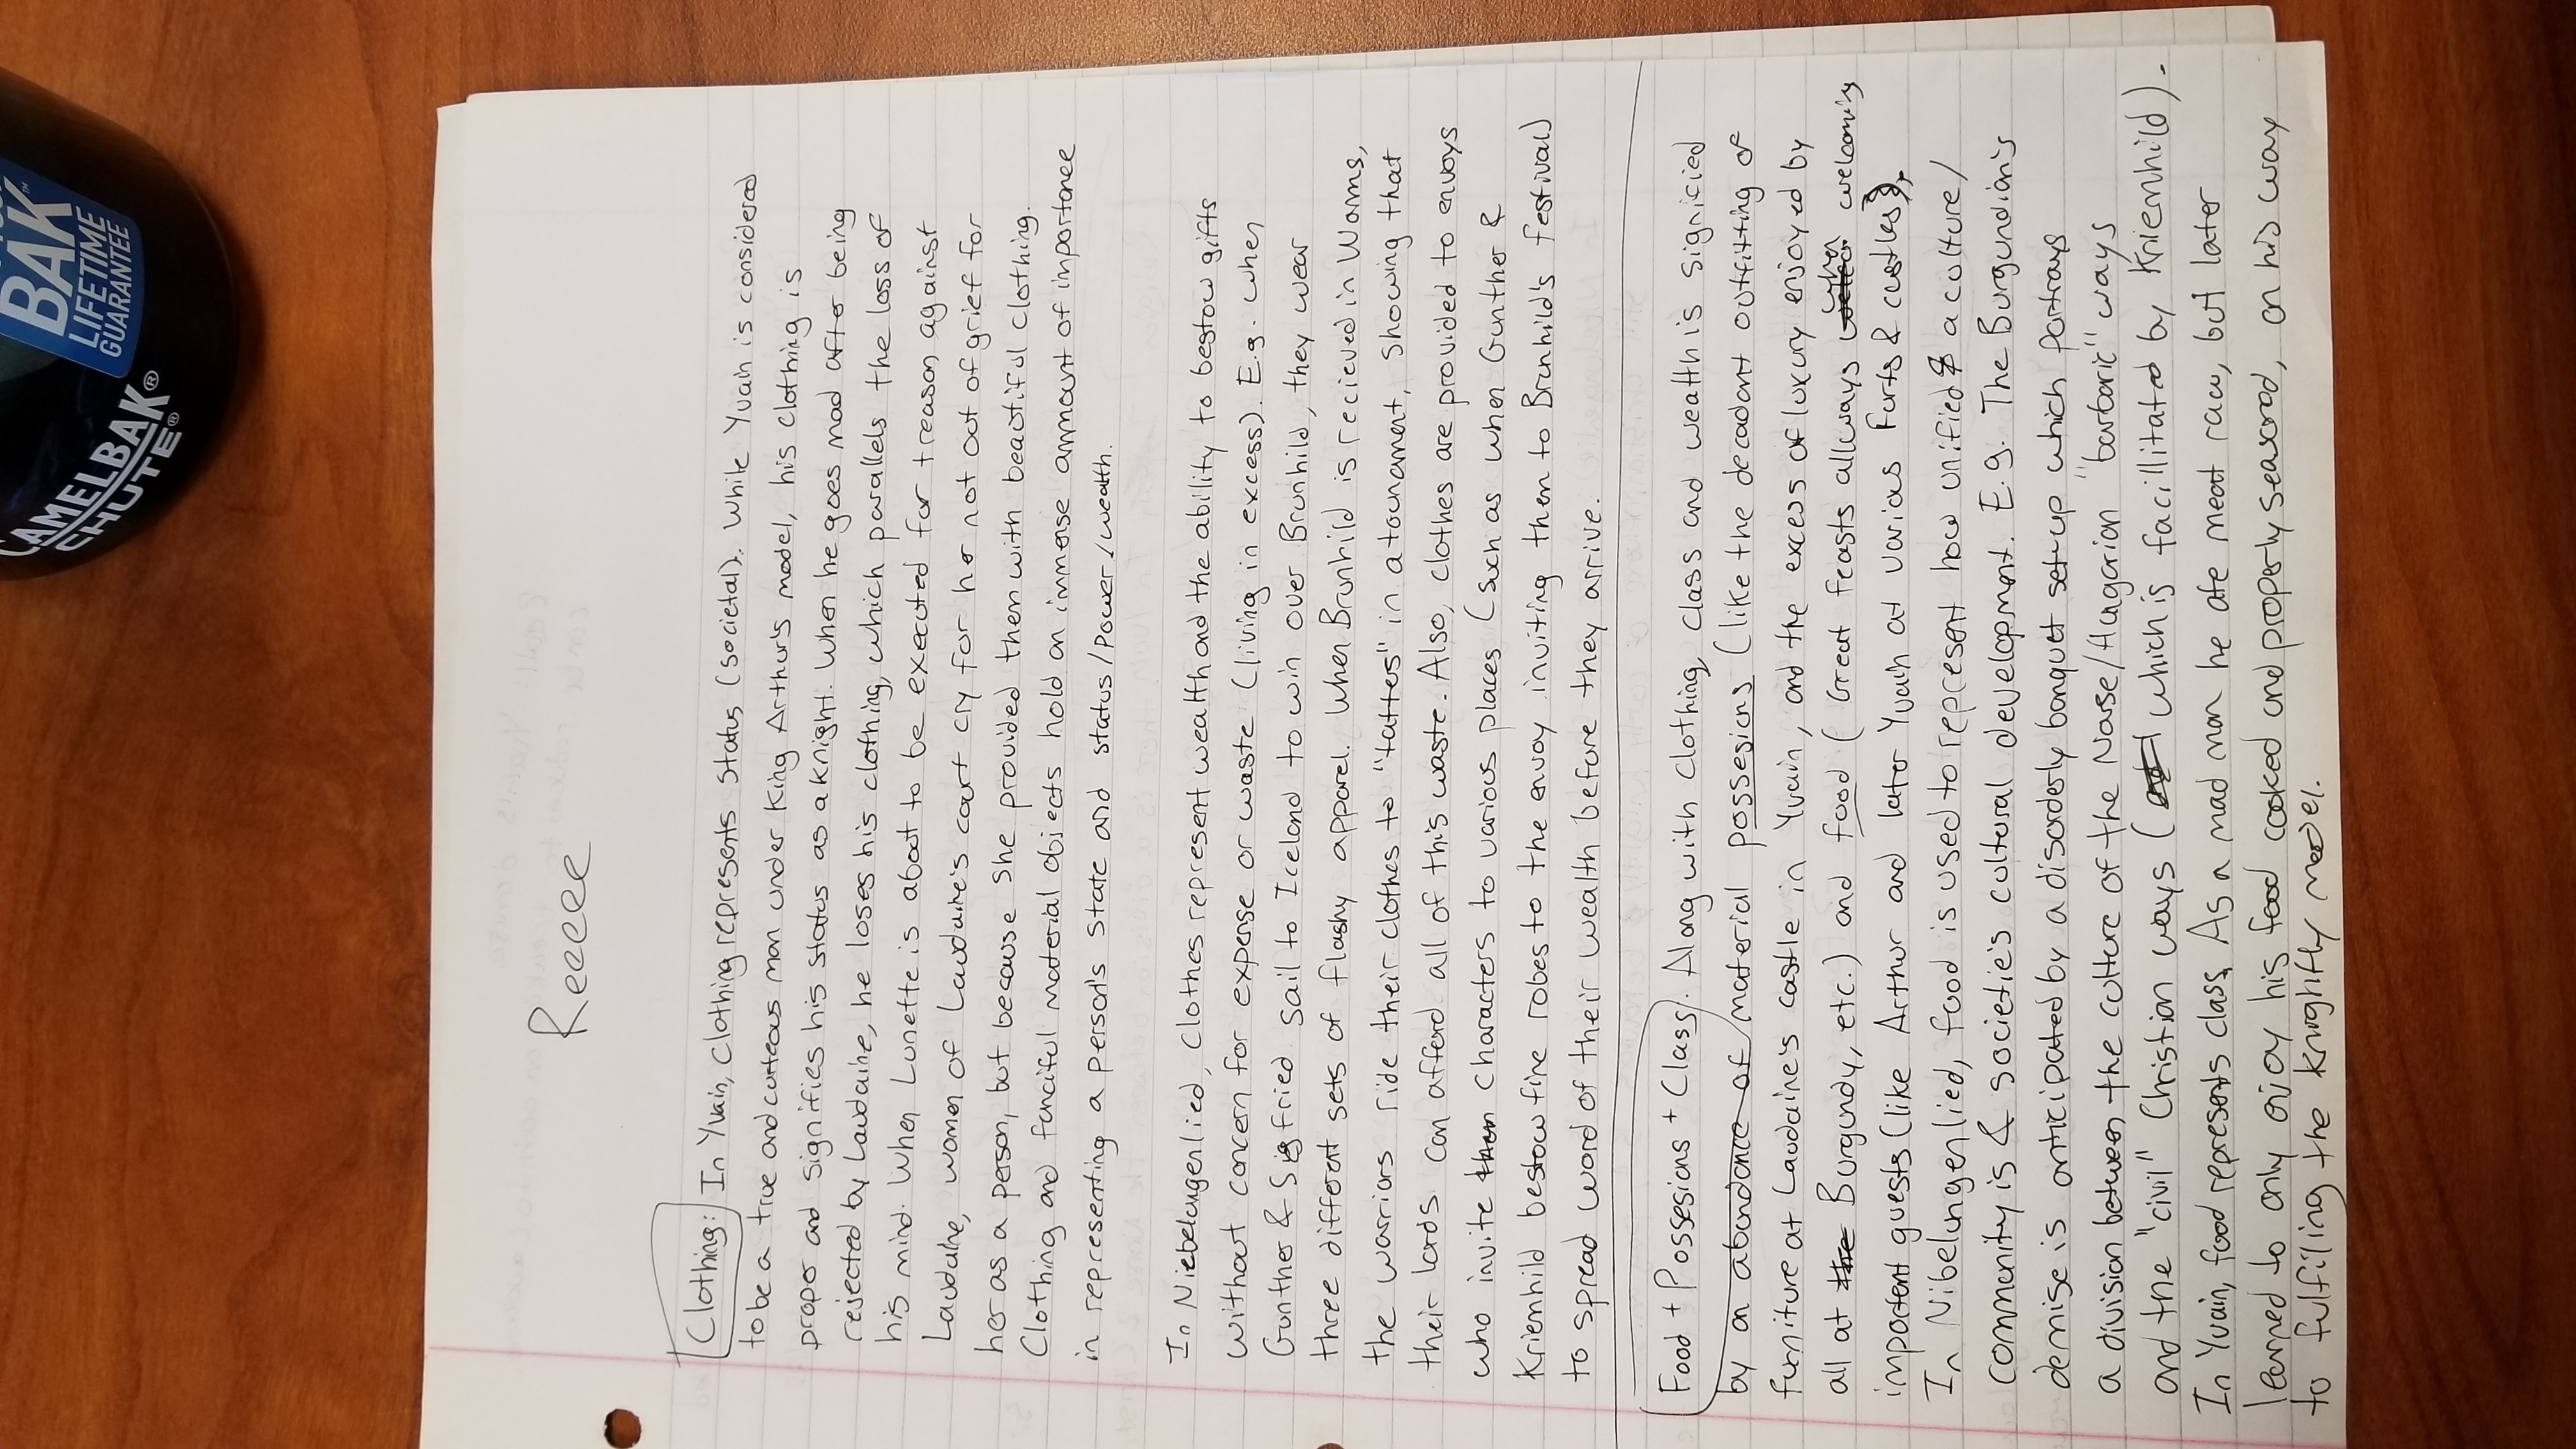 BAK™
LIFETIME
GUARANTEE
CAMELBAK®
CHUTE®
Reeeee
Clothing: In Yvain, clothing represents status (societal). While Yvain is considered
to be a true and curteous man under King Arthur's model, his clothing is
proper and signifies his status as a knight. When he goes mad after being
rejected by Laudaine, he loses his clothing, which parallels the loss of
his mind. When Lunette is about to be executed for treason against
Laudaine, women of Laudaine's court cry for her not out of grief for
her as a person, but because she provided them with beautiful clothing.
Clothing and fanciful material objects hold an immense ammount of importance
in representing a person's state and status/power/wealth.
In Niebelungenlied, clothes represent wealth and the ability to bestow gifts
without concern for expense or waste (living in excess). E.g. when
Gunther & Sigfried sail to Iceland to win over Brunhild, they wear
three different sets of flashy apparel. When Brunhild is recieved in Worms,
the warriors ride their clothes to "tatters" in a tournament, showing that
their lords can afford all of this waste. Also, clothes are provided to envoys
who invite them characters to various places (such as when Gunther &
Kriemhild bestow fine robes to the envoy inviting them to Brunhild's festival)
to spread word of their wealth before they arrive.
Food + Possesions + Class. Along with clothing, class and wealth is signified
by an abundance of material possesions (like the decadant outfitting of
furniture at Laudaine's castle in Yvain, and the excess of luxury enjoyed by
all at the Burgundy, etc.) and food (Great feasts allways when welcoming
important guests (like Arthur and later Yvain at various forts & castles).
In Nibelungenlied, food is used to represent how unified a culture/
community is & societie's cultural development. E.g. The Burgundian's
demise is anticipated by a disorderly banquet set-up which portrays
a division between the culture of the Norse/Hungarian "barbaric" ways
and the "civil" Christian ways (which is facillitated by Kriemhild).
In Yvain, food represents class. As a mad man he ate meat raw, but later
learned to only enjoy his food cooked and properly seasoned, on his way
to fulfilling the knightly model.